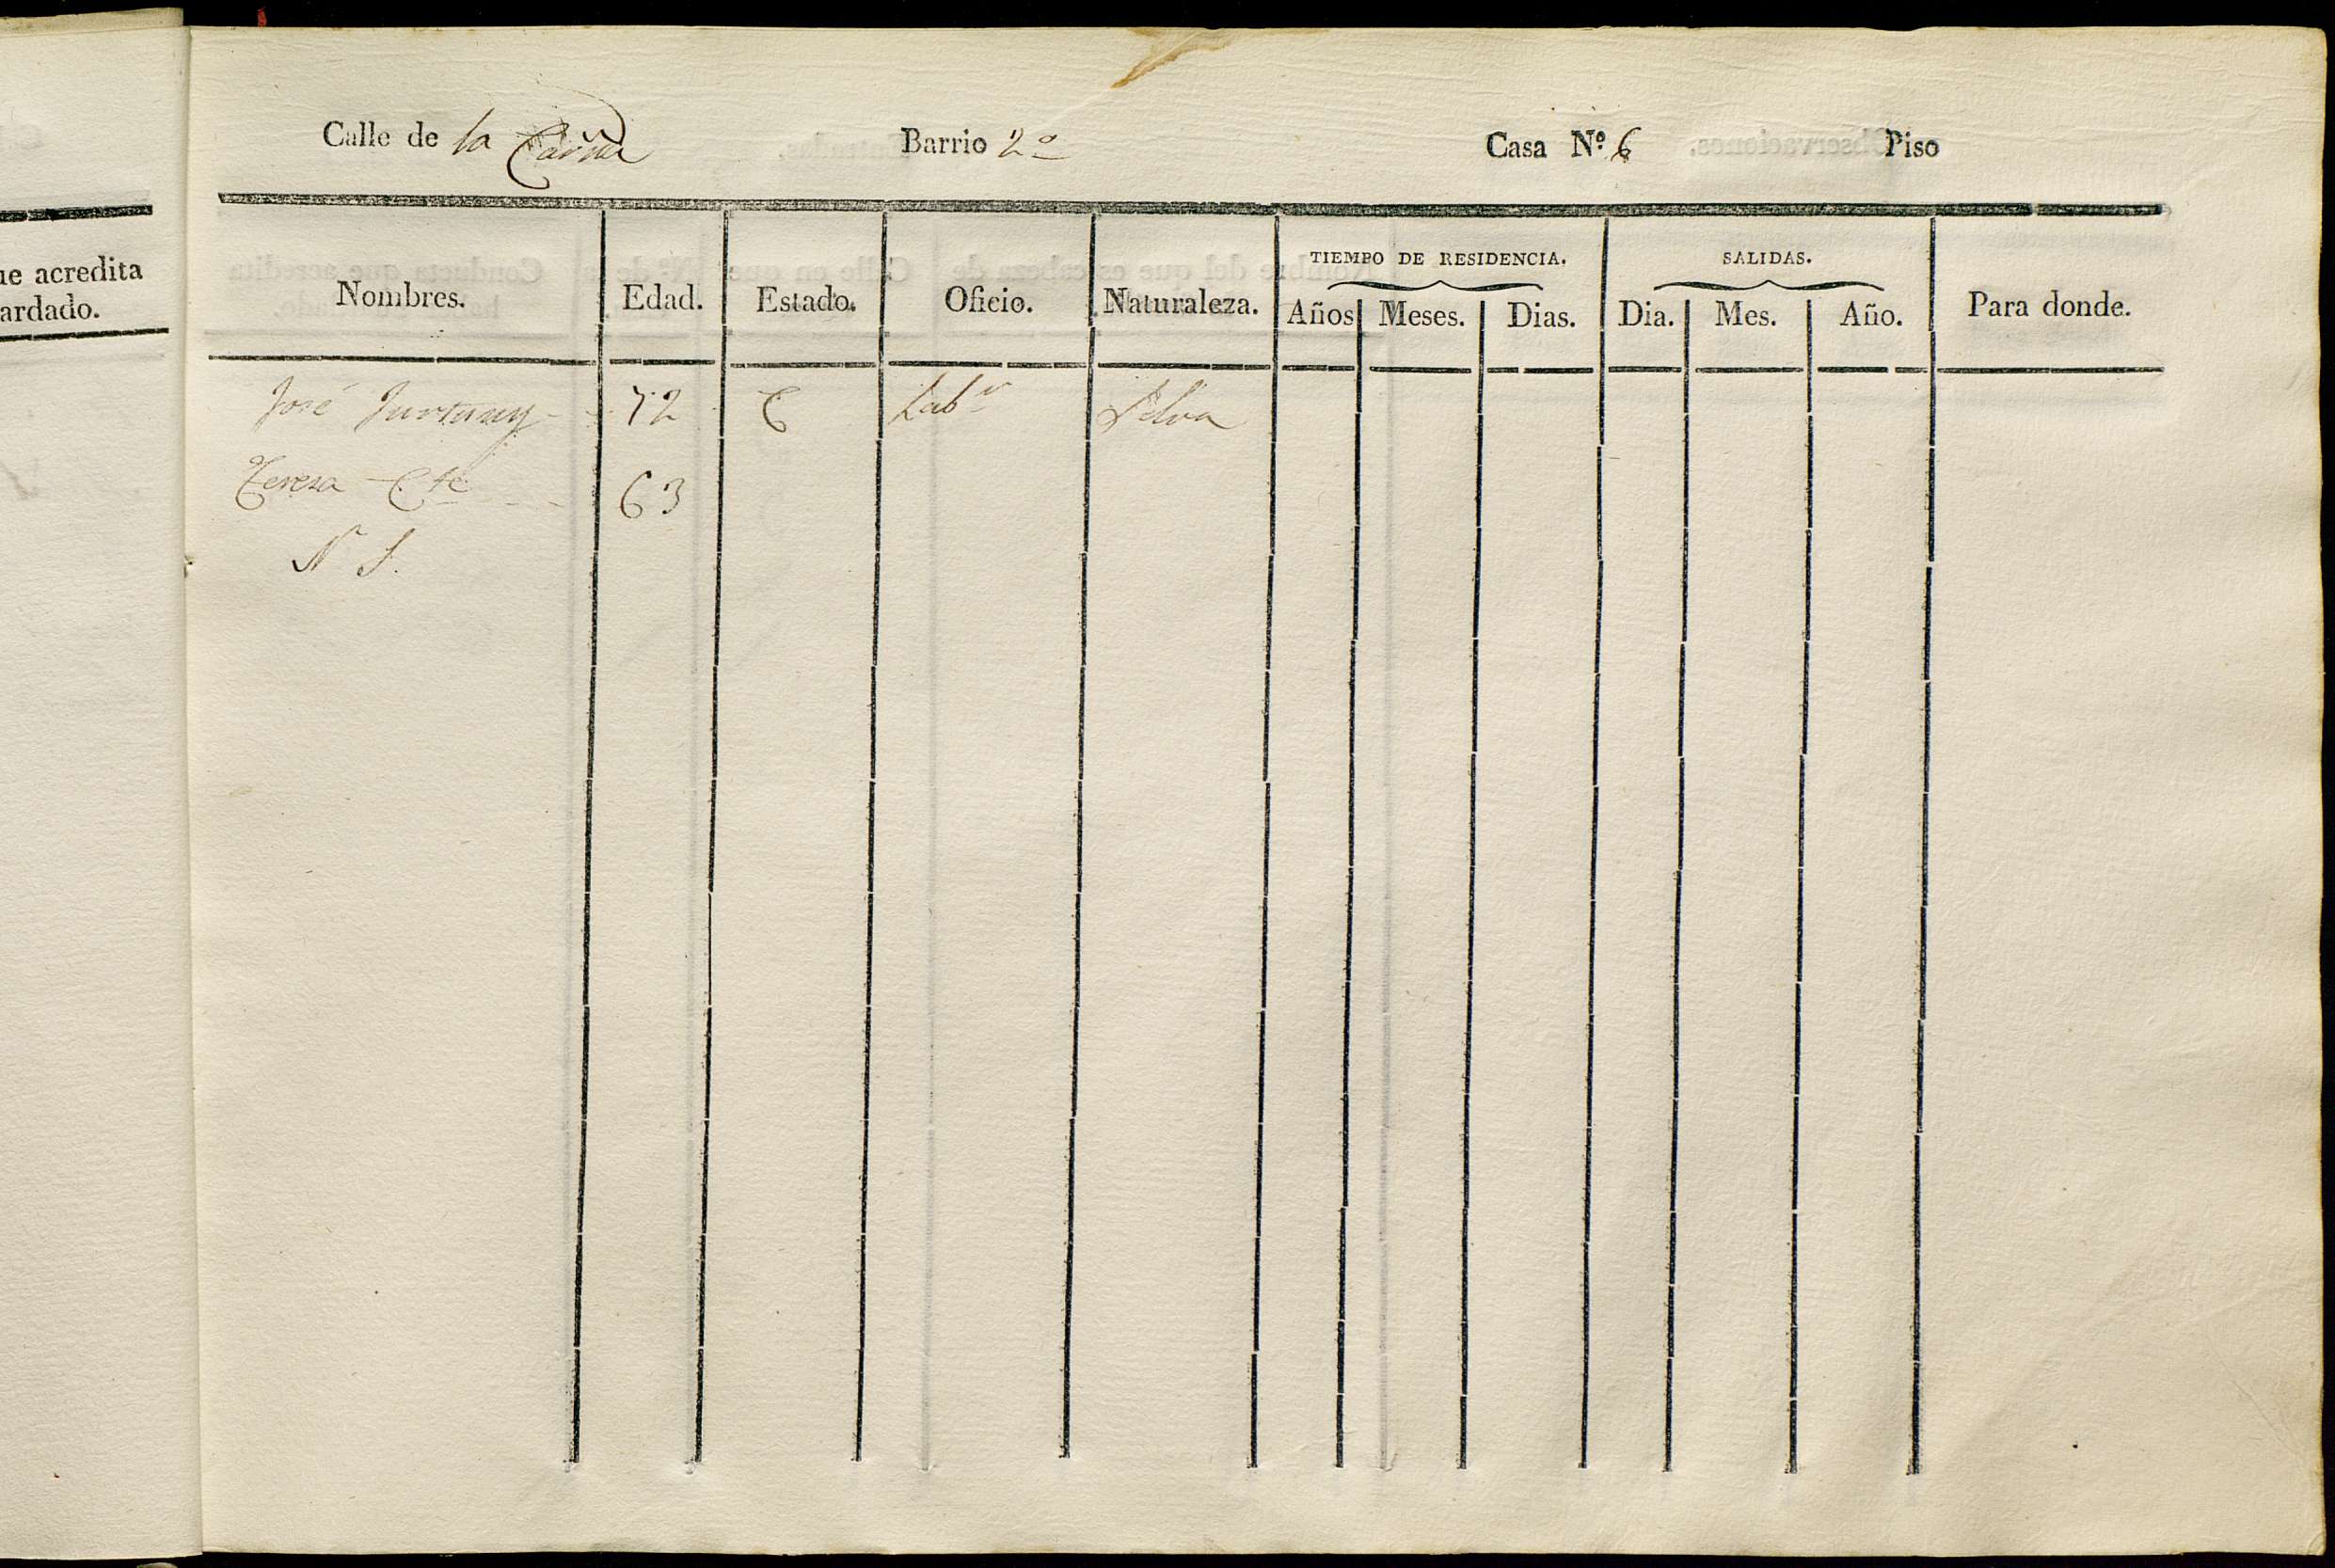 ue acredita
ardado.
Calle de la Barrio 2º Casa Nº 6 Piso
Nombres. Edad. Estado. Oficio. Naturaleza. TIEMPO DE RESIDENCIA. SALIDAS. Para donde.
Años Meses. Dias. Dia. Mes. Año.
José 72 C Labr Selva
Teresa Cte 63
N S.